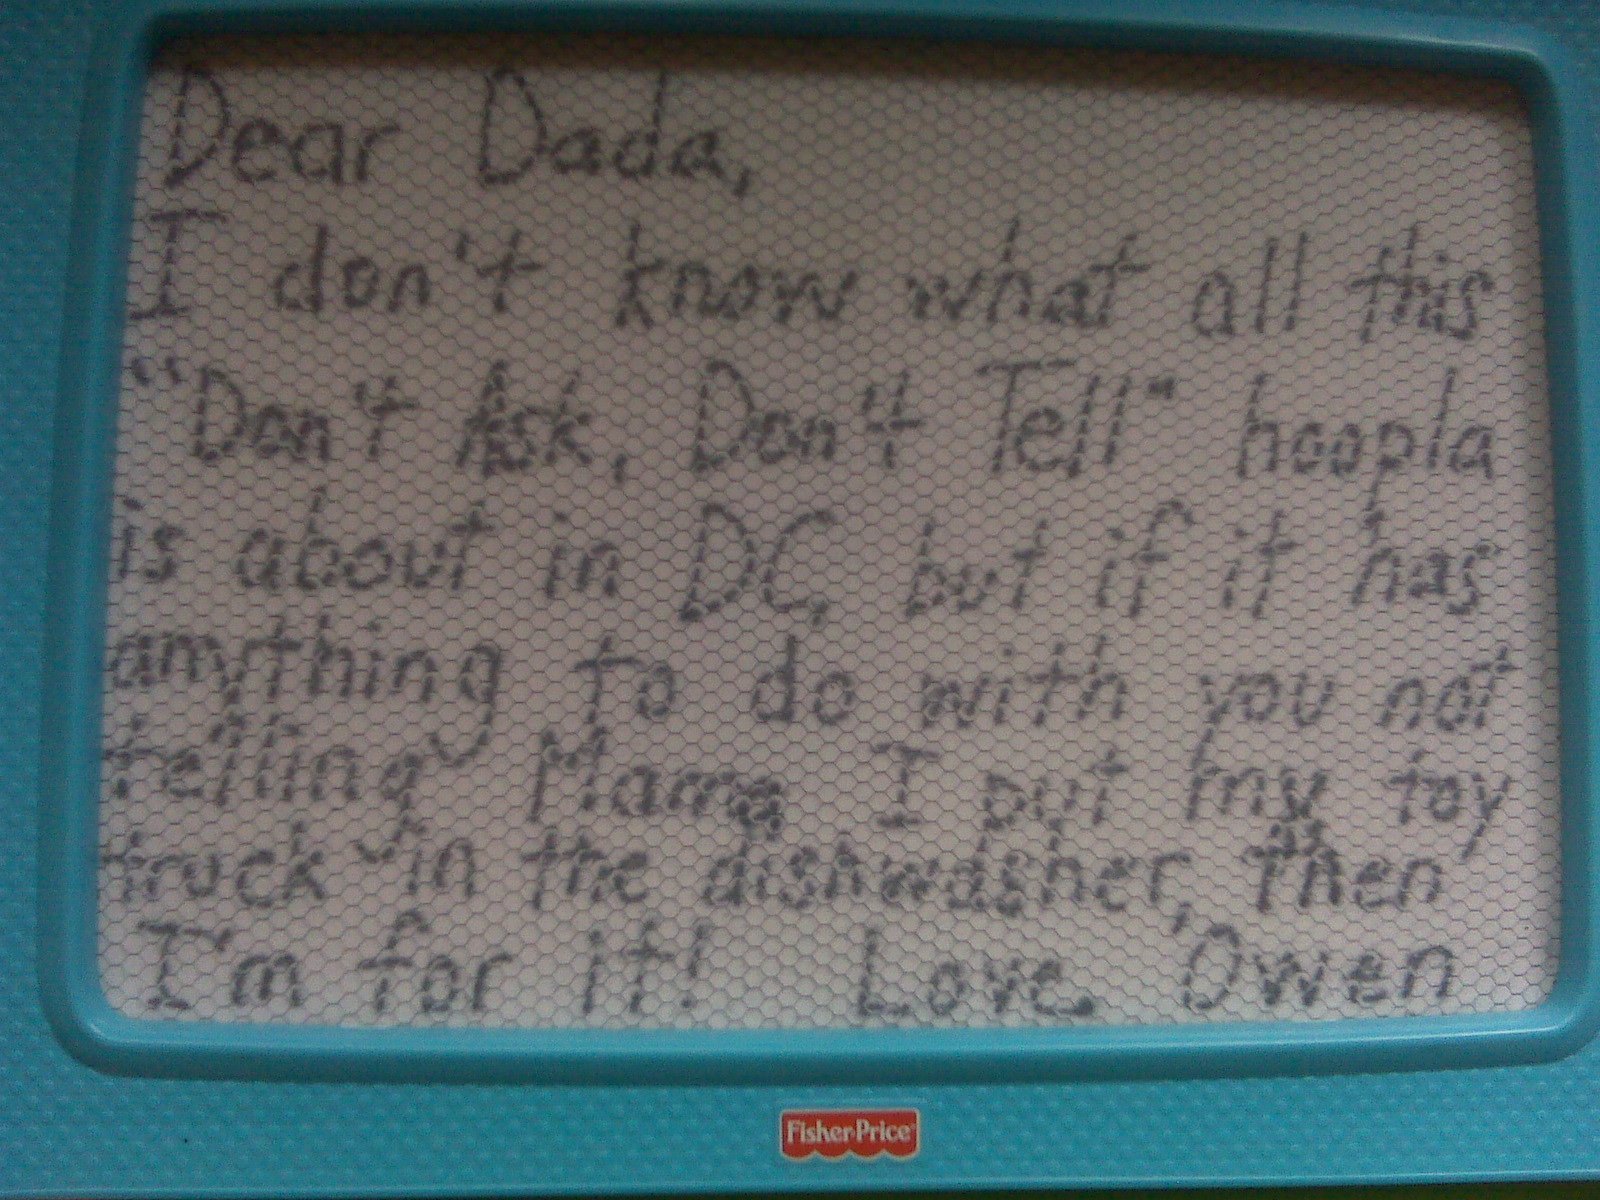 Dear Dada,
I don't know what all this
"Don't Ask, Don't Tell" hoopla
is about in DC, but if it has
anything to do with you not
telling Mama I put my toy
truck in the dishwasher, then
I'm for it! Love, Owen
Fisher-Price